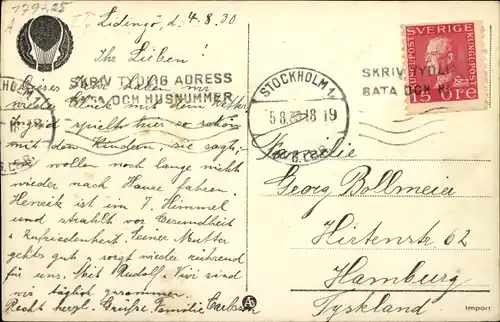 179-25
A
Lidingö, d. 4.8.30
Ihr Lieben!
SKRIV TYDLIG ADRESS
GATA OCH HUSNUMMER
STOCKHOLM 1
5.8.30-18 19
SKRIV TYDL
GATA OCH H
SVERIGE
15 ÖRE
Dieses Jahr haben wir
Ingrid spielt hier so schön
mit den Kindern, sie sagt,
wollen noch lange nicht
wieder nach Hause fahren.
Henrik ist im 7. Himmel
und strahlt vor Gesundheit
u. Zufriedenheit. Seiner Mutter
gehts gut u. sorgt wieder rührend
für uns. Mit Rudolf, Vivi sind
wir täglich zusammen
Recht herzl. Grüße Familie Carlsson
Familie
Georg Bollmeier
Hirtenstr. 62
Hamburg
Tyskland
Import